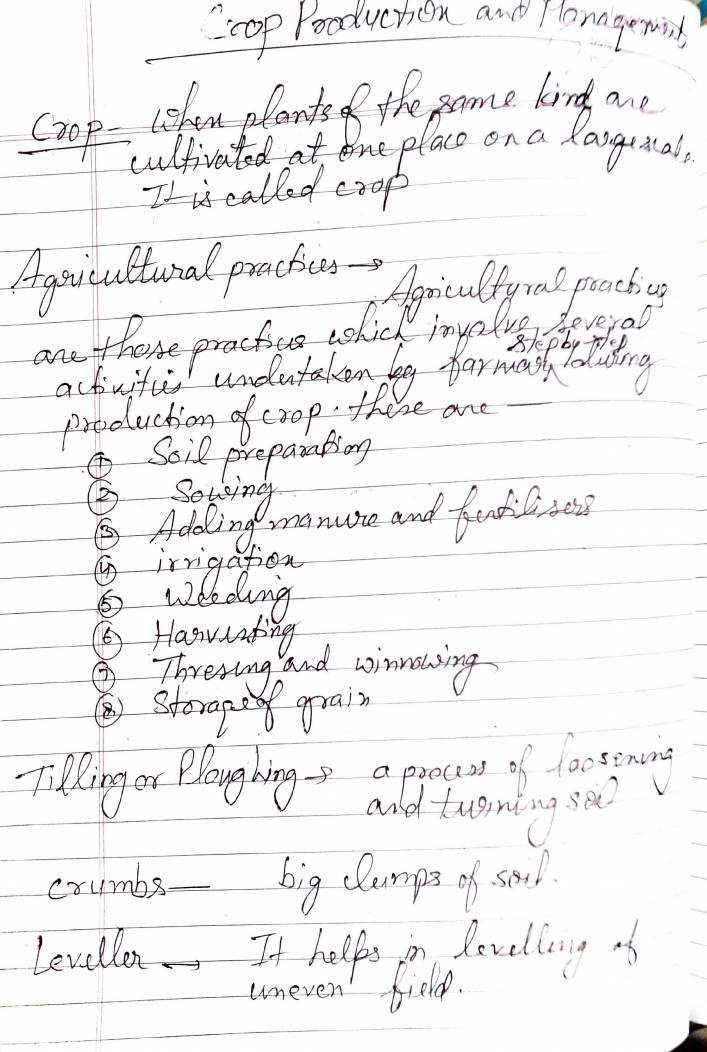 Crop Production and Management
Crop - When plants of the same kind are
cultivated at one place on a large scale.
It is called crop
Agricultural practices →
Agricultyral practices
are those practices which involve several
activities undertaken by farmers during
step by step
production of crop. these are —
① Soil preparation
② Sowing
③ Adding manure and fertilisers
④ irrigation
⑤ Weeding
⑥ Harvesting
⑦ Thresing and winnowing
⑧ Storage of grain
Tilling or Ploughing → a process of loosening
and turning soil
crumbs — big clumps of soil.
Leveller → It helps in levelling of
uneven field.